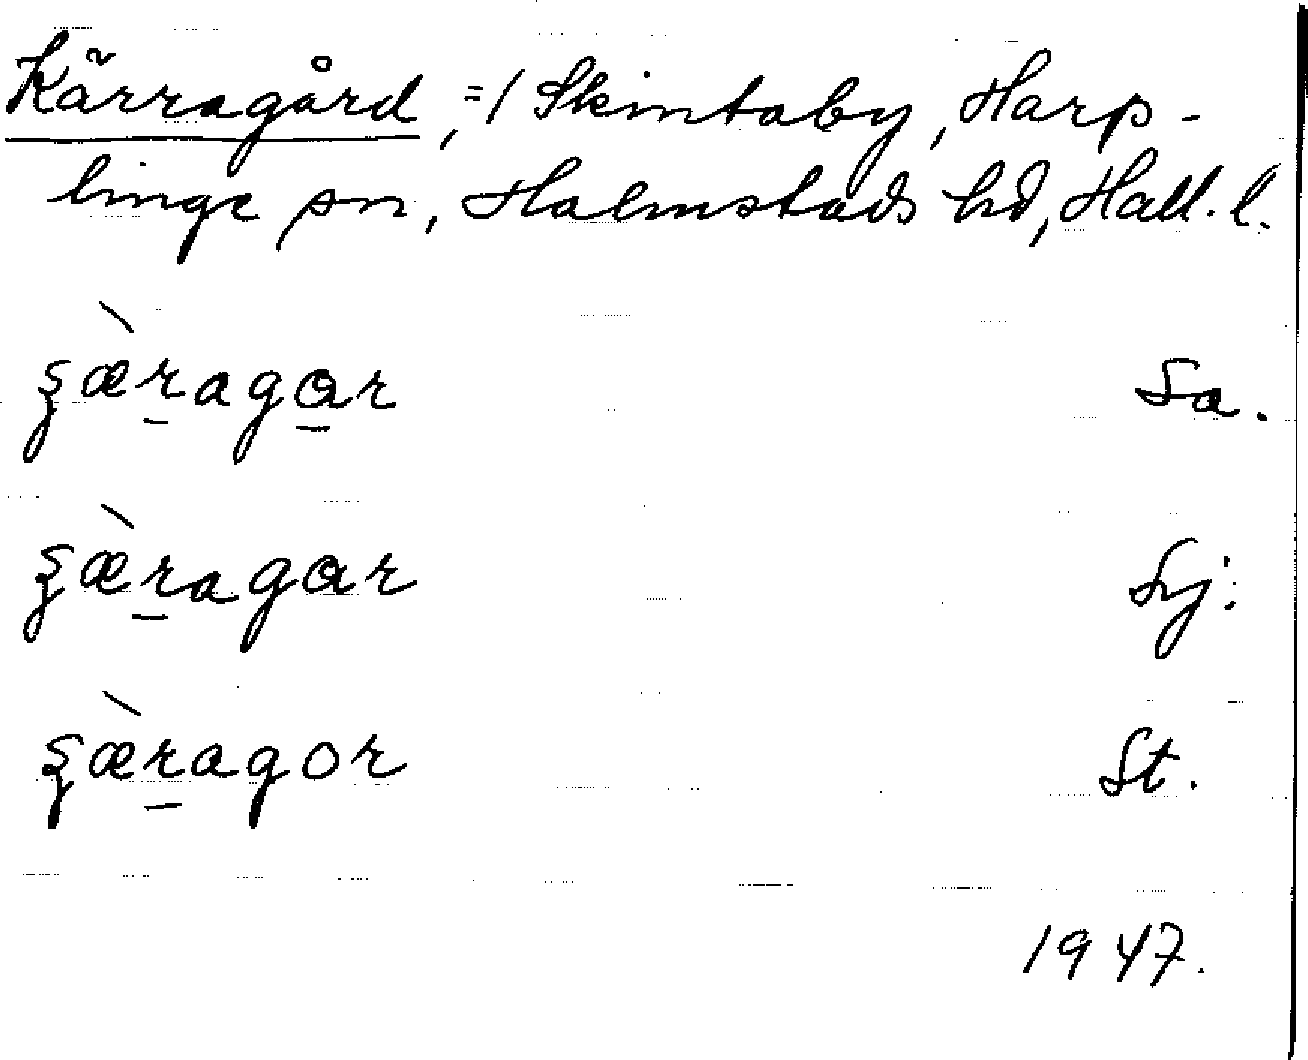 Kärragård, =/ Skintaby, Harp-
linge sn, Halmstads hd, Hall. l.
ʂæ̀ragar Sa.
ʂæ̀ragar Sj:
ʂæ̀ragor St.
1947.